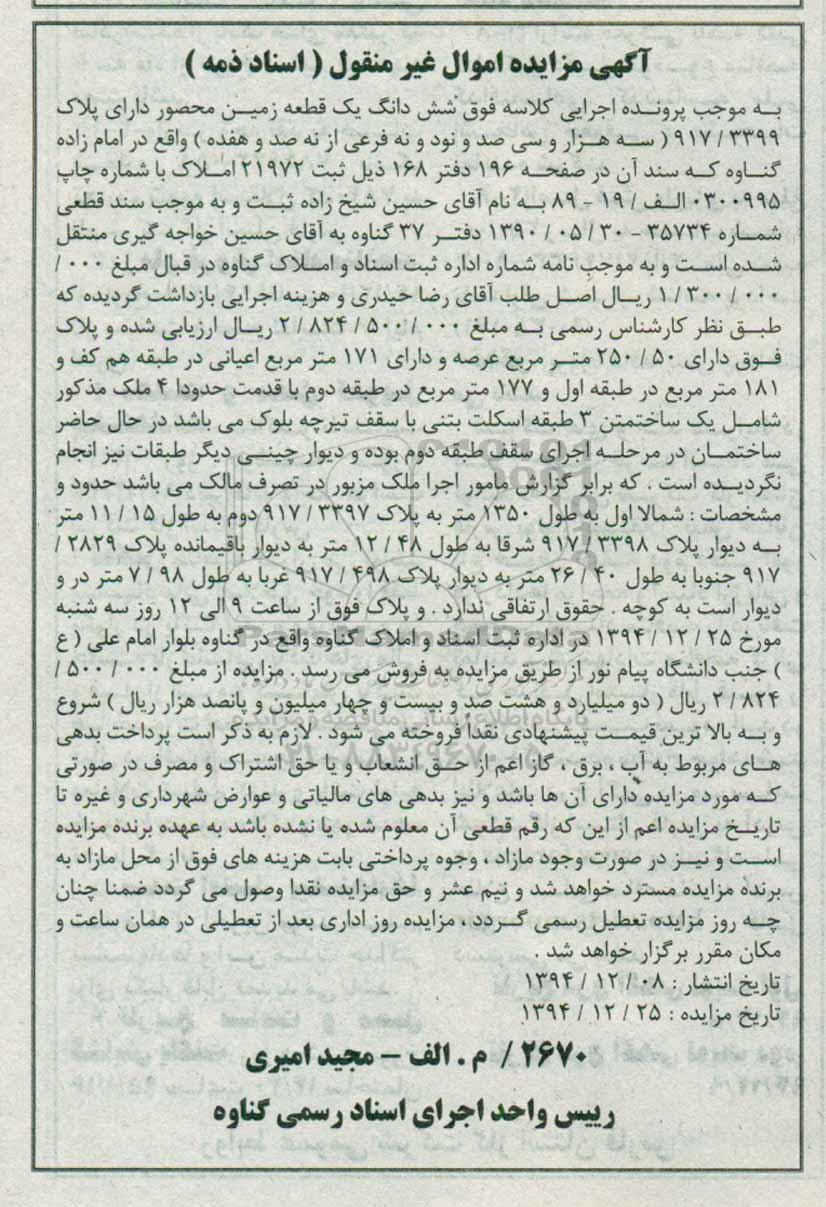 آگهی مزایده اموال غیر منقول ( اسناد ذمه )
به موجب پرونده اجرایی کلاسه فوق شش دانگ یک قطعه زمین محصور دارای پلاک
۳۳۹۹ / ۹۱۷ ( سه هزار و سی صد و نود و نه فرعی از نه صد و هفده ) واقع در امام زاده
گناوه که سند آن در صفحه ۱۹۶ دفتر ۱۶۸ ذیل ثبت ۲۱۹۷۲ املاک با شماره چاپ
۰۳۰۰۹۹۵ الف / ۱۹ - ۸۹ به نام آقای حسین شیخ زاده ثبت و به موجب سند قطعی
شماره ۳۵۷۳۴ - ۳۰ / ۰۵ / ۱۳۹۰ دفتر ۳۷ گناوه به آقای حسین خواجه گیری منتقل
شده است و به موجب نامه شماره اداره ثبت اسناد و املاک گناوه در قبال مبلغ ۰۰۰ /
۰۰۰ / ۳۰۰ / ۱ ریال اصل طلب آقای رضا حیدری و هزینه اجرایی بازداشت گردیده که
طبق نظر کارشناس رسمی به مبلغ ۰۰۰ / ۵۰۰ / ۸۲۴ / ۲ ریال ارزیابی شده و پلاک
فوق دارای ۵۰ / ۲۵۰ متر مربع عرصه و دارای ۱۷۱ متر مربع اعیانی در طبقه هم کف و
۱۸۱ متر مربع در طبقه اول و ۱۷۷ متر مربع در طبقه دوم با قدمت حدودا ۴ ملک مذکور
شامل یک ساختمتن ۳ طبقه اسکلت بتنی با سقف تیرچه بلوک می باشد در حال حاضر
ساختمان در مرحله اجرای سقف طبقه دوم بوده و دیوار چینی دیگر طبقات نیز انجام
نگردیده است . که برابر گزارش مامور اجرا ملک مزبور در تصرف مالک می باشد حدود و
مشخصات : شمالا اول به طول ۱۳۵۰ متر به پلاک ۳۳۹۷ / ۹۱۷ دوم به طول ۱۵ / ۱۱ متر
به دیوار پلاک ۳۳۹۸ / ۹۱۷ شرقا به طول ۴۸ / ۱۲ متر به دیوار باقیمانده پلاک ۲۸۲۹ /
۹۱۷ جنوبا به طول ۴۰ / ۲۶ متر به دیوار پلاک ۴۹۸ / ۹۱۷ غربا به طول ۹۸ / ۷ متر در و
دیوار است به کوچه . حقوق ارتفاقی ندارد . و پلاک فوق از ساعت ۹ الی ۱۲ روز سه شنبه
مورخ ۲۵ / ۱۲ / ۱۳۹۴ در اداره ثبت اسناد و املاک گناوه واقع در گناوه بلوار امام علی ( ع
) جنب دانشگاه پیام نور از طریق مزایده به فروش می رسد . مزایده از مبلغ ۰۰۰ / ۵۰۰ /
۸۲۴ / ۲ ریال ( دو میلیارد و هشت صد و بیست و چهار میلیون و پانصد هزار ریال ) شروع
و به بالا ترین قیمت پیشنهادی نقدا فروخته می شود . لازم به ذکر است پرداخت بدهی
های مربوط به آب ، برق ، گاز اعم از حق انشعاب و یا حق اشتراک و مصرف در صورتی
که مورد مزایده دارای آن ها باشد و نیز بدهی های مالیاتی و عوارض شهرداری و غیره تا
تاریخ مزایده اعم از این که رقم قطعی آن معلوم شده یا نشده باشد به عهده برنده مزایده
است و نیز در صورت وجود مازاد ، وجوه پرداختی بابت هزینه های فوق از محل مازاد به
برنده مزایده مسترد خواهد شد و نیم عشر و حق مزایده نقدا وصول می گردد ضمنا چنان
چه روز مزایده تعطیل رسمی گردد ، مزایده روز اداری بعد از تعطیلی در همان ساعت و
مکان مقرر برگزار خواهد شد .
تاریخ انتشار : ۰۸ / ۱۲ / ۱۳۹۴
تاریخ مزایده : ۲۵ / ۱۲ / ۱۳۹۴
۲۶۷۰ / م . الف - مجید امیری
رییس واحد اجرای اسناد رسمی گناوه